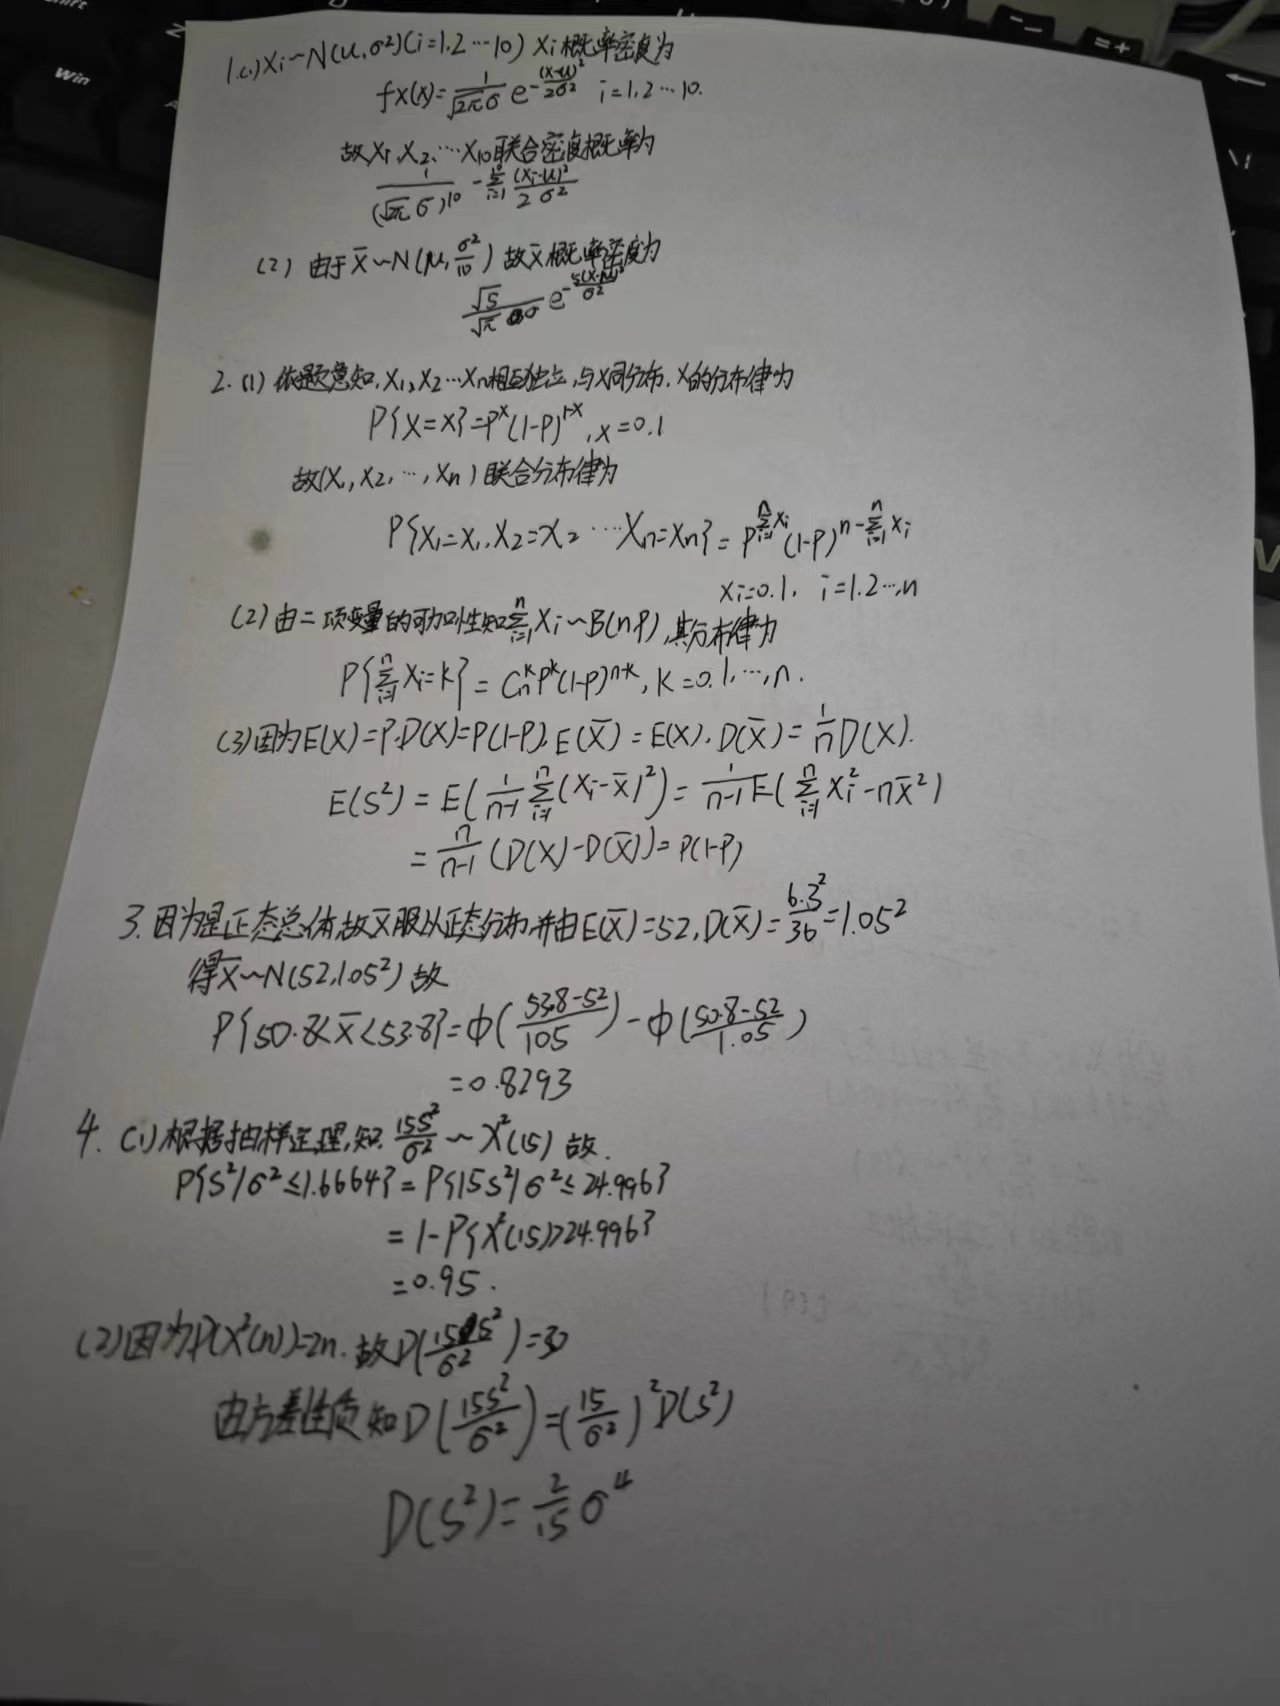 1.(1) Xi~N(μ,σ²)(i=1.2…10) Xi概率密度为
fX(x)=1/(√2π σ) e^(-(x-μ)²/2σ²) i=1,2…10.
故X1,X2,…X10联合密度概率为
1/(√2π σ)^10 -Σ_{i=1}^{10} (Xi-μ)²/2σ²
(2) 由于X̄~N(μ,σ²/10) 故X̄概率密度为
√5/(√π σ) e^(-5(x-μ)²/σ²)
2.(1) 依题意知,X1,X2…Xn相互独立,与X同分布,X的分布律为
P{X=x}=P^x(1-P)^(1-x),x=0.1
故(X1,X2,…,Xn)联合分布律为
P{X1=x1,X2=x2…Xn=xn}=P^(Σ_{i=1}^n xi)(1-P)^(n-Σ_{i=1}^n xi)
xi=0.1, i=1.2…,n
(2)由二项变量的可加性知Σ_{i=1}^n Xi~B(n,P),其分布律为
P{Σ_{i=1}^n Xi=k}=C_n^k P^k(1-P)^(n-k),k=0.1,…,n.
(3)因为E(X)=P,D(X)=P(1-P),E(X̄)=E(X),D(X̄)=1/n D(X).
E(S²)=E(1/(n-1) Σ_{i=1}^n (Xi-X̄)²)=1/(n-1) E(Σ_{i=1}^n Xi²-nX̄²)
=n/(n-1) (D(X)-D(X̄))=P(1-P)
3.因为是正态总体,故X̄服从正态分布,并由E(X̄)=52,D(X̄)=6.3²/36=1.05²
得X̄~N(52,1.05²)故
P{50.8<X̄<53.8}=Φ((53.8-52)/1.05)-Φ((50.8-52)/1.05)
=0.8293
4. (1)根据抽样定理,知15S²/σ²~X²(15)故.
P{S²/σ²≤1.6664}=P{15S²/σ²≤24.996}
=1-P{X²(15)>24.996}
=0.95.
(2)因为D(X²(n))=2n.故D(15S²/σ²)=30
由方差性质知D(15S²/σ²)=(15/σ²)²D(S²)
D(S²)=2/15 σ⁴
Win